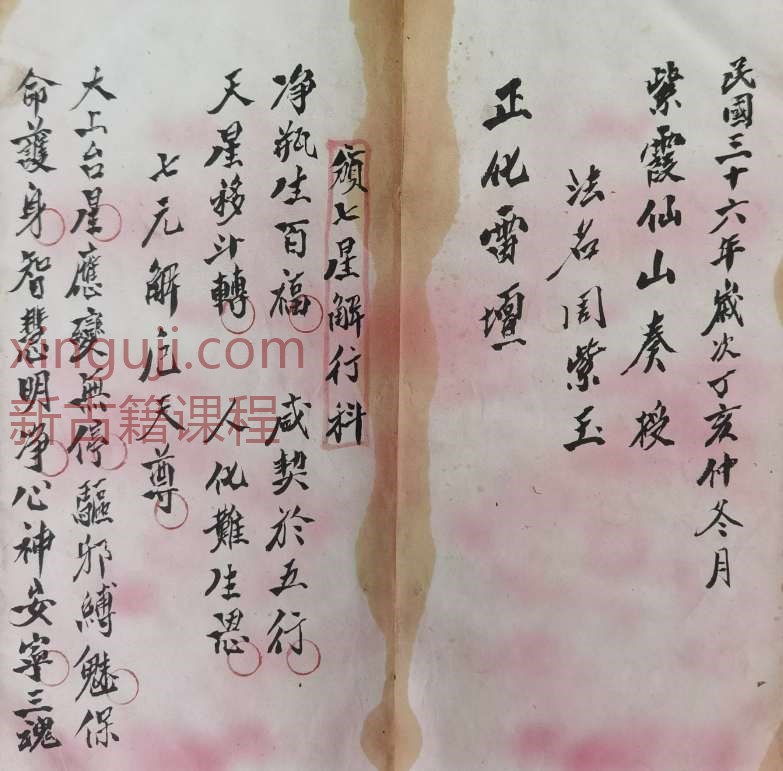 民國三十六年歲次丁亥仲冬月
紫霞仙山奏授
法名周紫玉
正化雷壇
頒七星解行科
净瓶生百福 咸契於五行
天星移斗轉 人化難生恩
七元解厄天尊
大上台星應變無停驅邪縛魅保
命護身智慧明净心神安寧三魂
xinguji.com
新古籍课程